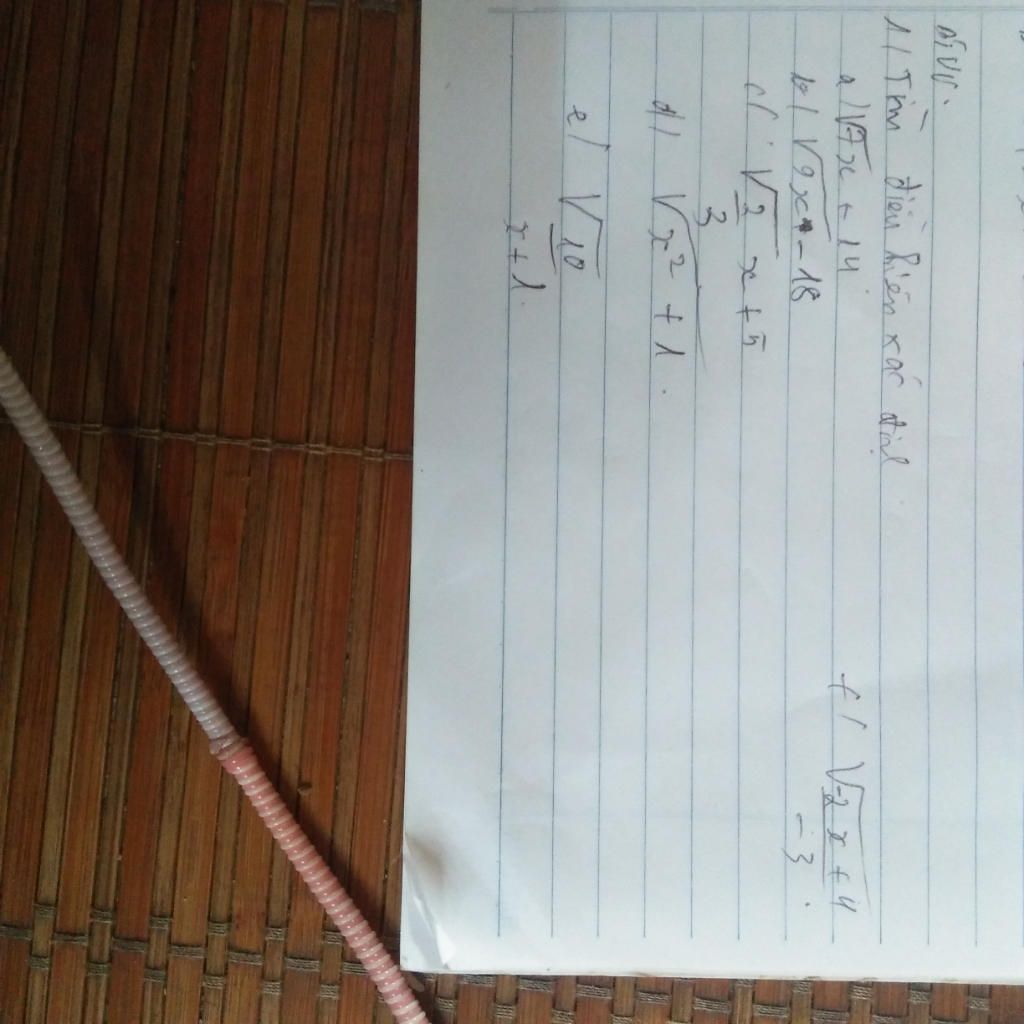 1/ Tìm điều kiện xác định
a/ √7x + 14
b/ √9x - 18
c/ √2/3 x + 5
d/ √x² + 1.
e/ √10/x+1.
f/ √-2x+4/-3.